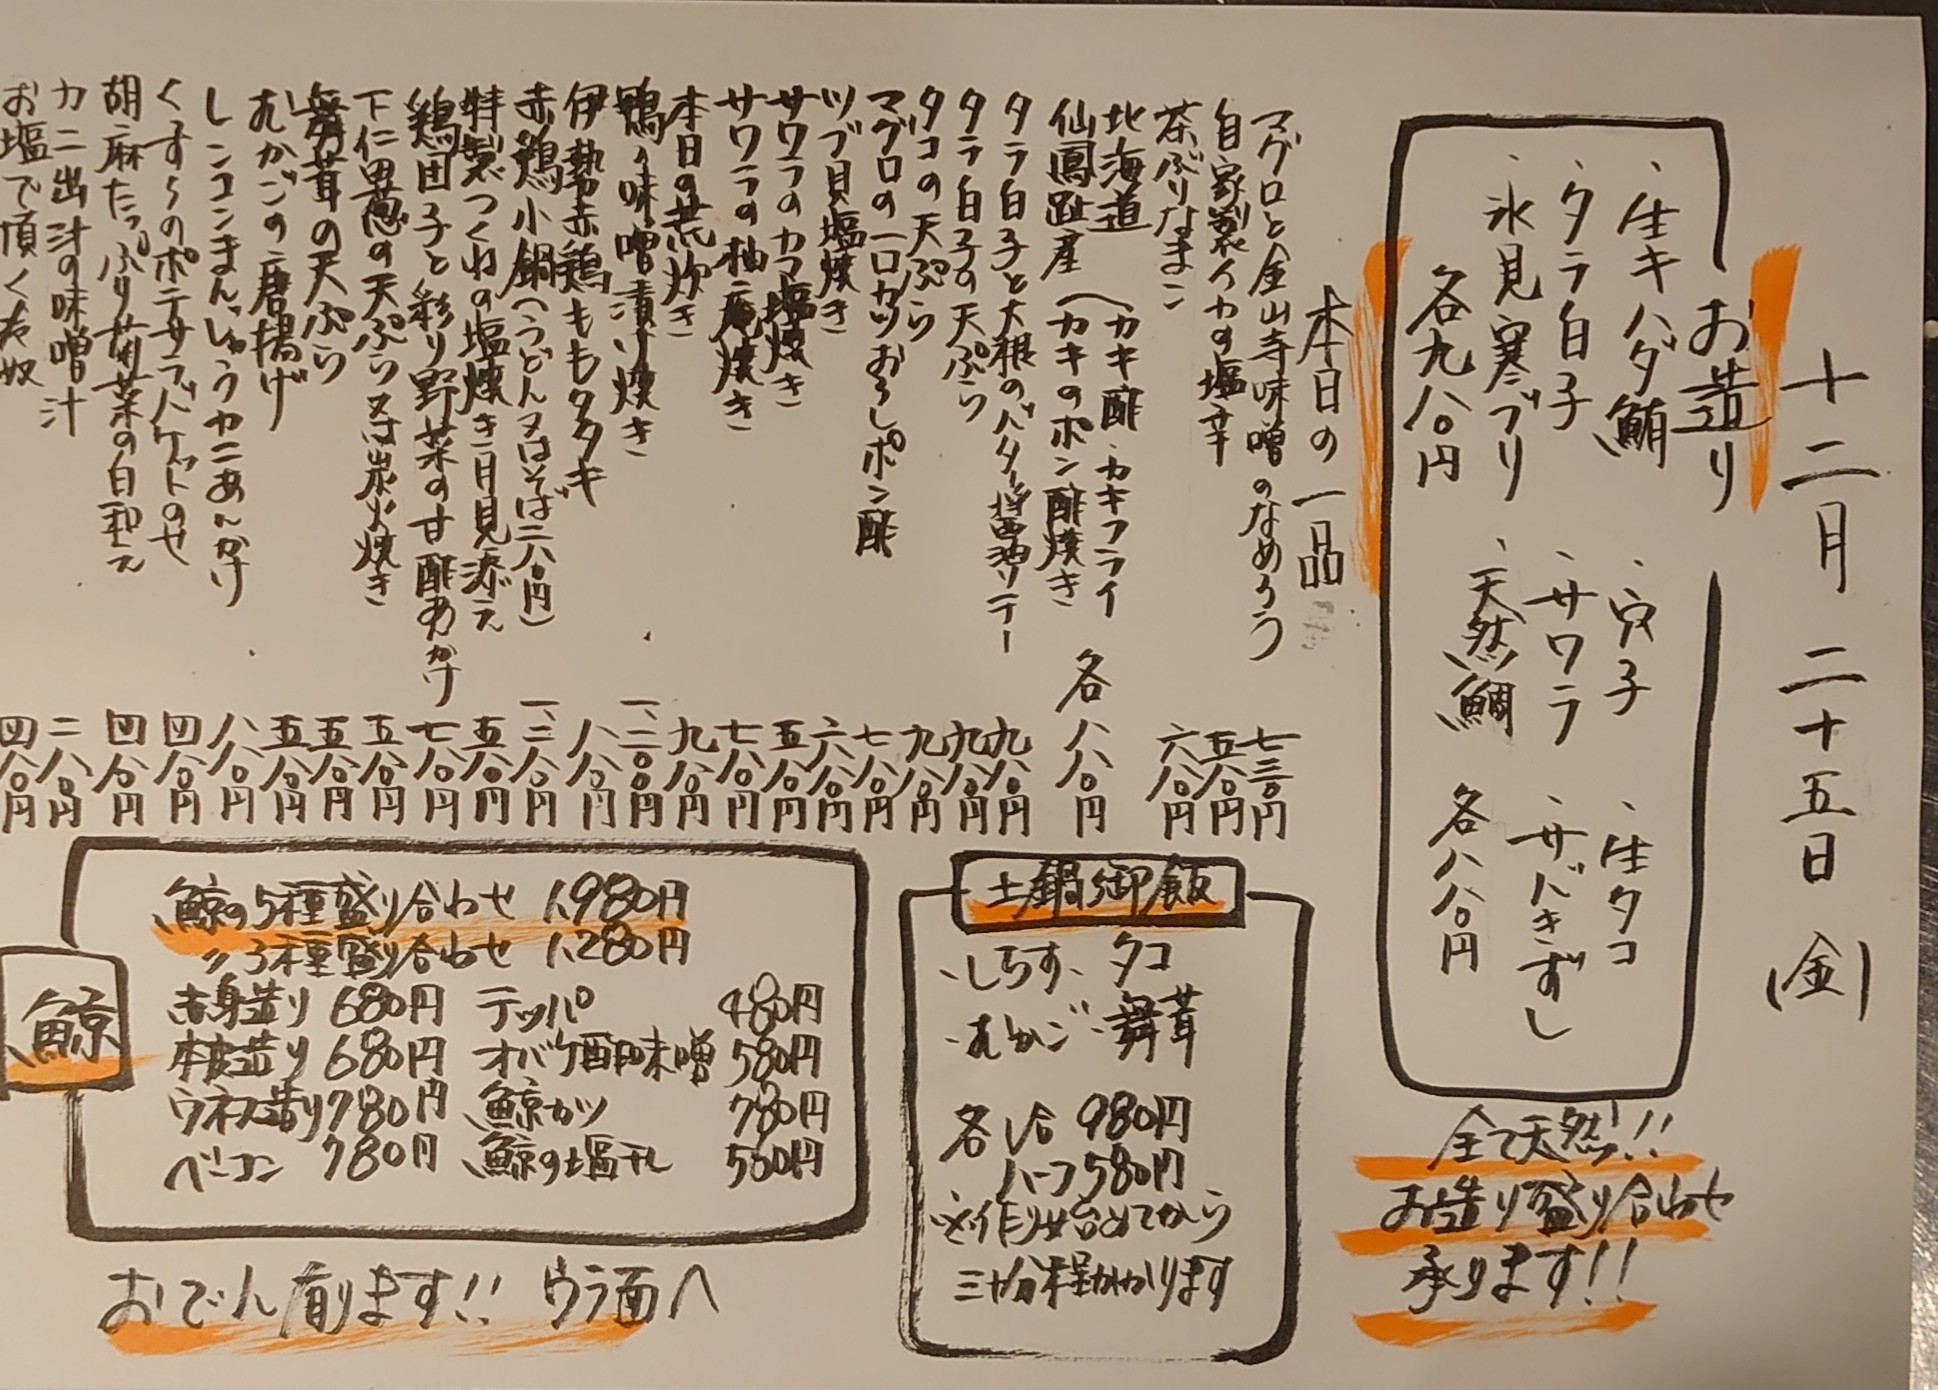 十二月二十五日(金)
お造り
・生キハダ鮪 ・穴子 ・生タコ
・タラ白子 ・サワラ ・サバきずし
・氷見寒ブリ ・天然鯛
各九八〇円 各八八〇円
全て天然!!
お造り盛り合わせ
承ります!!
本日の一品
マグロと金山寺味噌のなめろう 七三〇円
自家製イカの塩辛 五八〇円
茶ぶりなまこ 六八〇円
北海道
仙鳳趾産(カキ酢・カキフライ
(カキのポン酢焼き 各八八〇円
タラ白子と大根のバター醤油ソテー 九八〇円
タラ白子の天ぷら 九八〇円
タコの天ぷら 九八〇円
マグロの一口カツおろしポン酢 七八〇円
ツブ貝塩焼き 六八〇円
サワラのカマ塩焼き 五八〇円
サワラの柚庵焼き 七八〇円
本日の荒炊き 九八〇円
鴨の味噌漬け焼き 一、二〇〇円
伊勢赤鶏ももタタキ 八八〇円
赤鶏小鍋(うどん又はそば二八〇円) 一、三八〇円
特製つくねの塩焼き月見添え 五八〇円
鶏団子と彩り野菜の甘酢あんかけ 七八〇円
下仁田葱の天ぷら又は炭火焼き 五八〇円
舞茸の天ぷら 五八〇円
むかごの唐揚げ 五八〇円
レンコンまんじゅうカニあんかけ 八八〇円
くずしのポテサラバケットのせ 四八〇円
胡麻たっぷり菊菜の白和え 四八〇円
カニ出汁の味噌汁 二八〇円
お塩で頂く冷奴 四八〇円
土鍋御飯
・しらす ・タコ
・むかご ・舞茸
各1合 980円
ハーフ580円
※作り始めてから
三十分程かかります
鯨
鯨の5種盛り合わせ 1,980円
〃3種盛り合わせ 1,280円
赤身造り 680円 テッパ 480円
本皮造り 680円 オバケ酢味噌 580円
ウネス造り 780円 鯨カツ 780円
ベーコン 780円 鯨の塩干し 500円
おでん有ります!! ウラ面へ